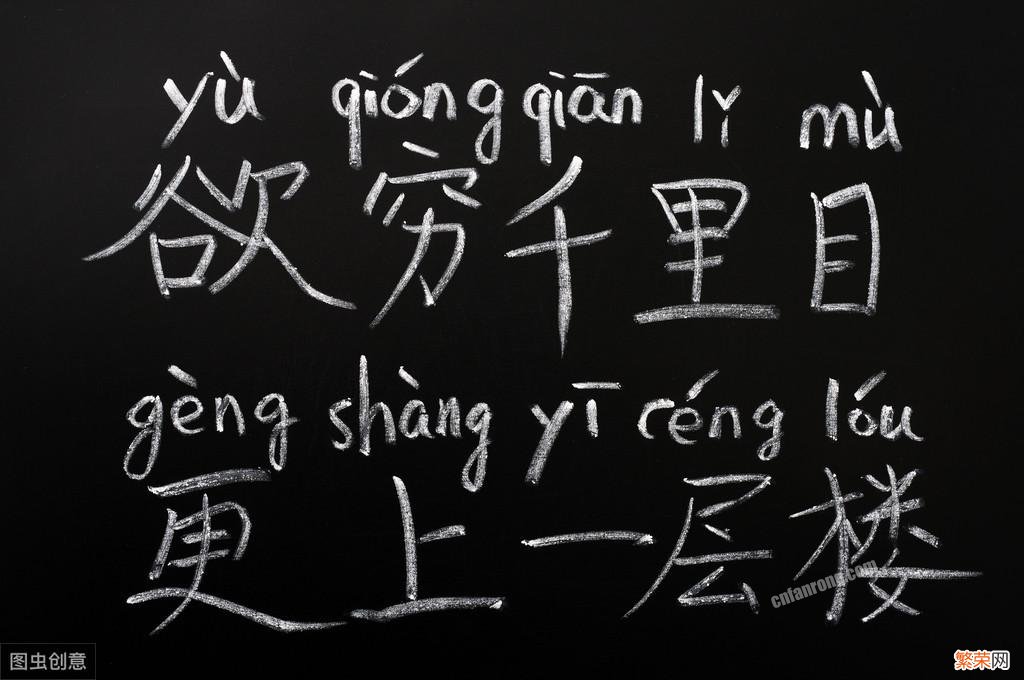 yù qióng qiān lǐ mù
欲穷千里目
gèng shàng yī céng lóu
更上一层楼
cnfanrong.com
图虫创意
繁荣网